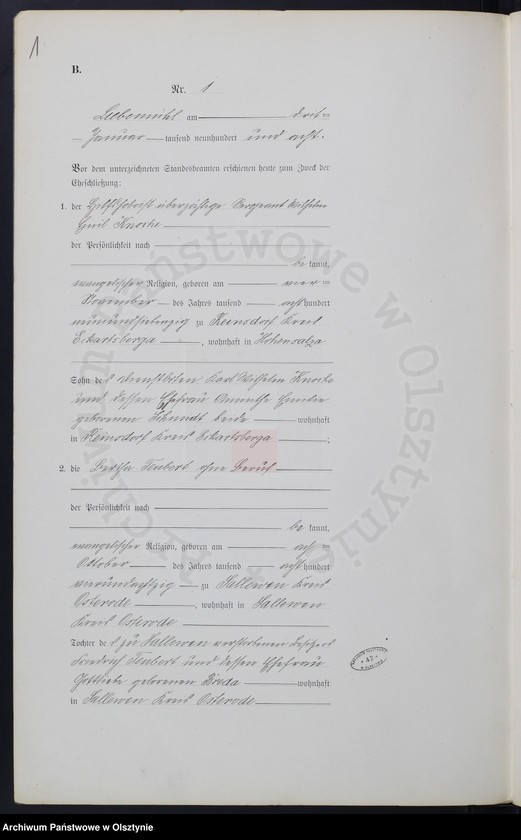 1
B.
Nr. 1
Liebemühl am drit=
Januar tausend neunhundert und acht.
Vor dem unterzeichneten Standesbeamten erschienen heute zum Zweck der
Eheschließung:
1. der überzählige Sergeant Wilhelm
Emil Knoche
der Persönlichkeit nach
be kannt,
evangelischer Religion, geboren am vier=
November des Jahres tausend acht hundert
neunundsiebenzig zu Reinsdorf Kreis
Eckartsberga, wohnhaft in Hohensalza
Sohn de s Karl Wilhelm Knoche
und dessen Ehefrau
geborenen Schmidt beide wohnhaft
in Reinsdorf Kreis Eckartsberga;
2. die Bertha Teubert ohne Beruf
der Persönlichkeit nach
be kannt,
evangelischer Religion, geboren am ach=
Oktober des Jahres tausend acht hundert
vierundachtzig zu Sallewen Kreis
Osterode, wohnhaft in Sallewen
Kreis Osterode
Tochter de s zu Sallewen verstorbenen Besitzers
Friedrich Teubert und dessen Ehefrau
Gottliebe geborenen wohnhaft
in Sallewen Kreis Osterode
Archiwum Państwowe w Olsztynie
Archiwum Państwowe w Olsztynie